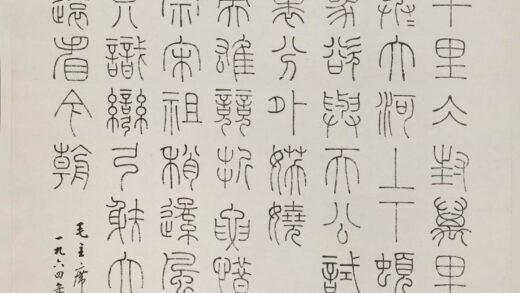 千里冰封萬里
大河上下頓
象欲與天公試
裹分外妖嬈
英雄競折腰惜
宗宋祖稍遜風
只識彎弓射大
還看今朝
毛主席
一九六四年